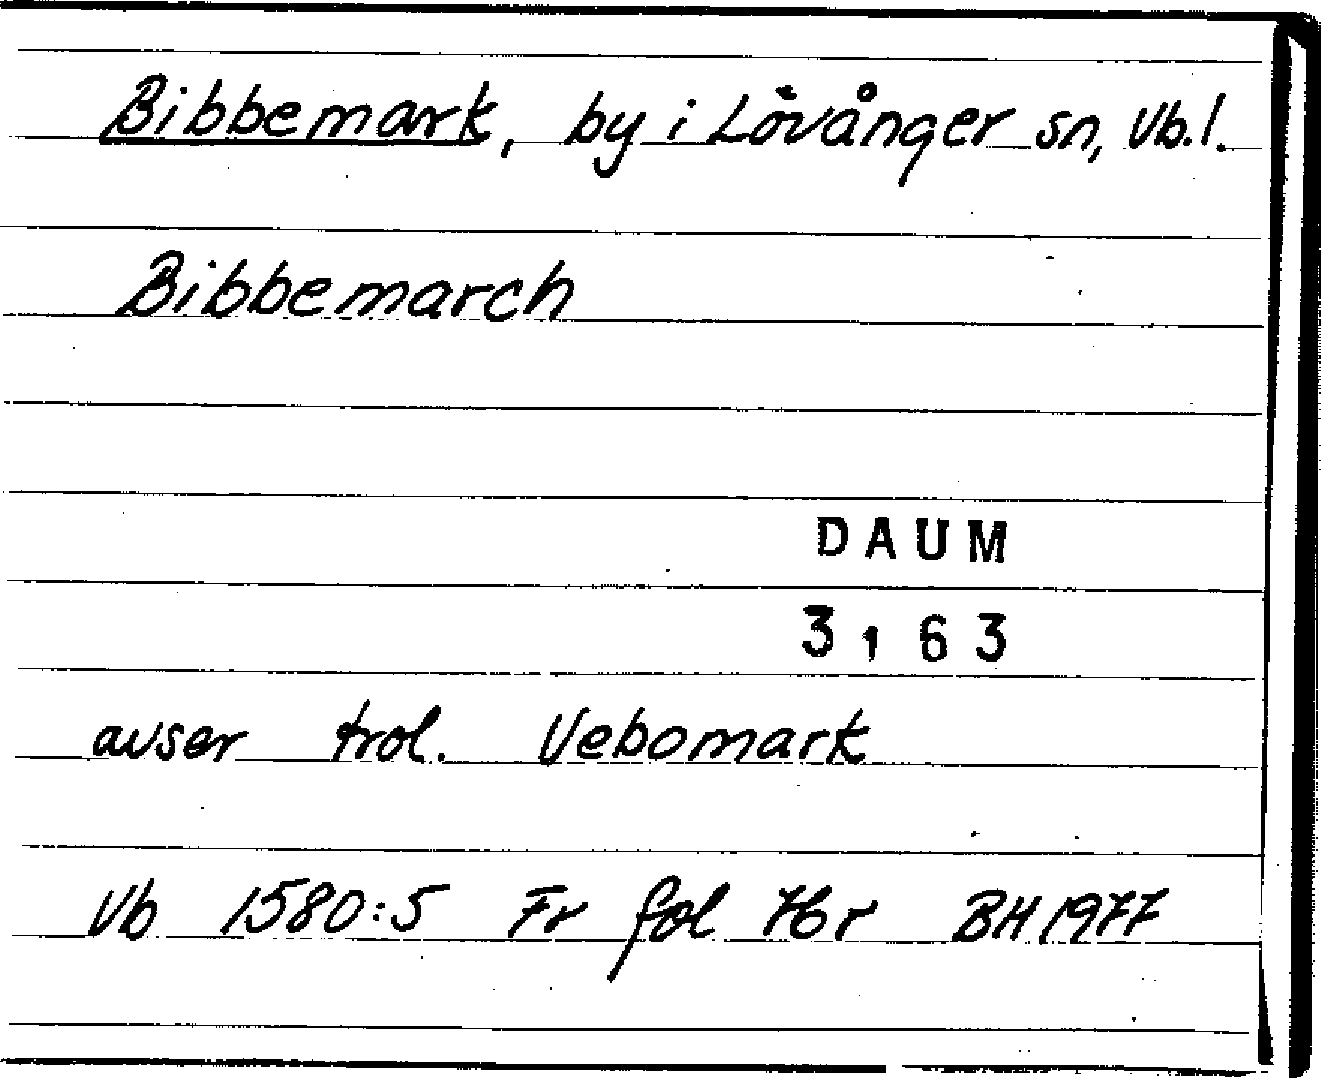 Bibbemark, by i Lövånger sn, Vb.l.
Bibbemarch
DAUM
3163
avser trol. Vebomark
Vb 1580:5 Fr fol 76r BH 1977